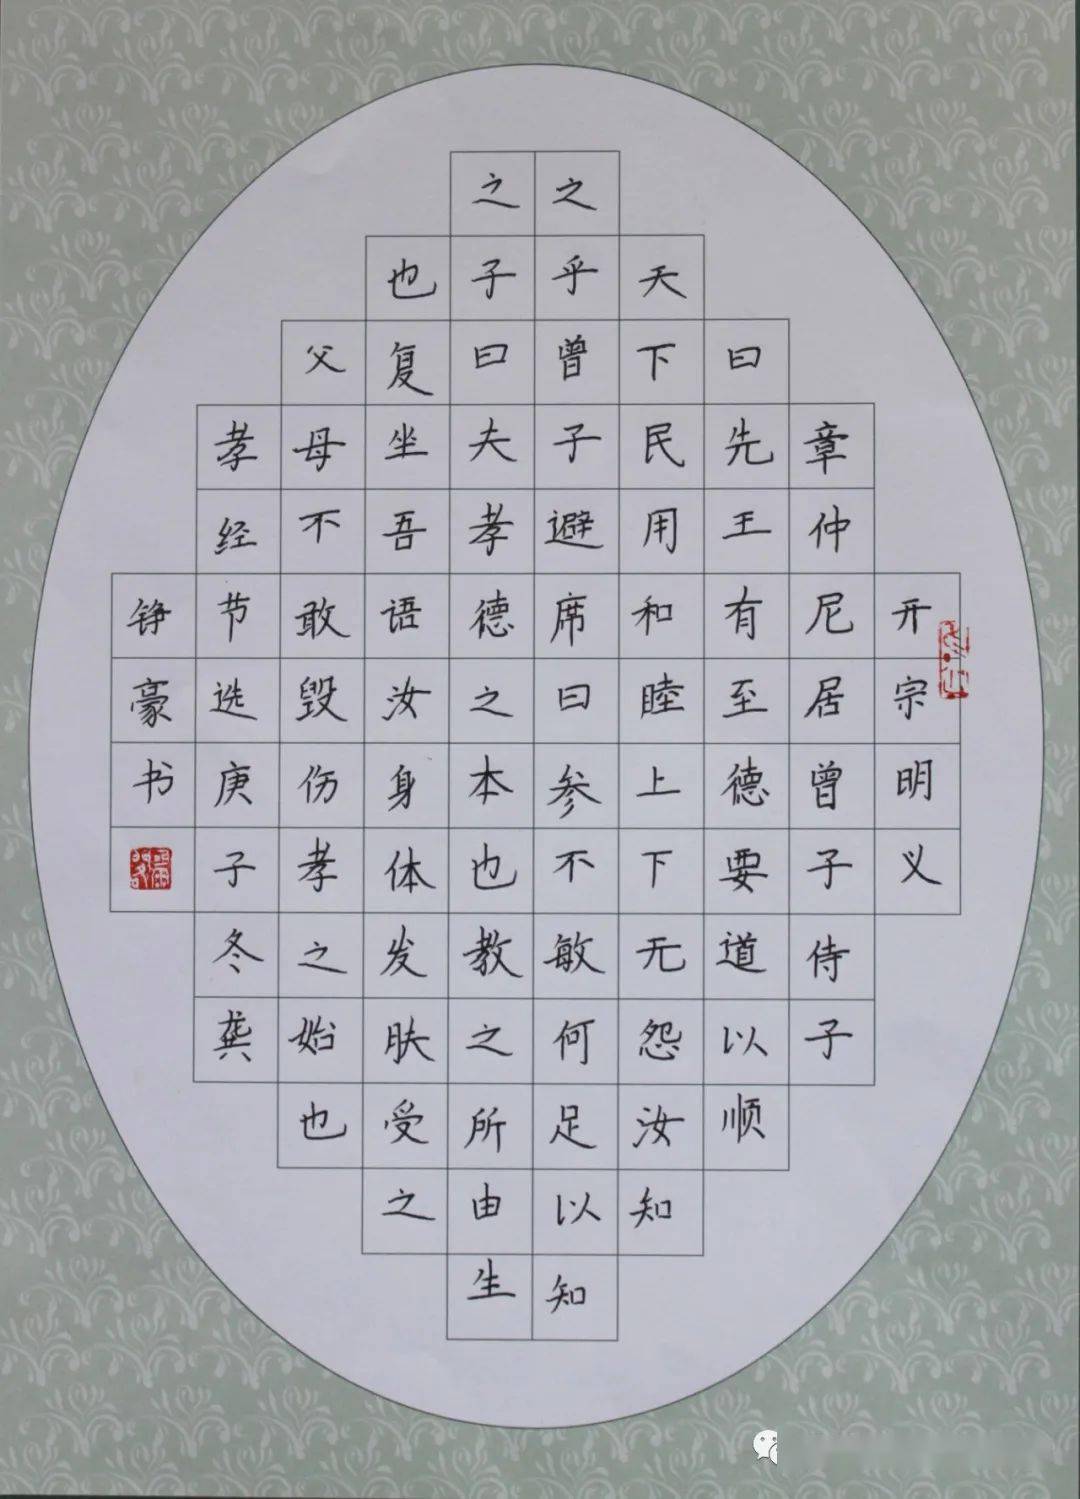 开宗明义
章仲尼居曾子侍子
曰先王有至德要道以顺
天下民用和睦上下无怨汝知
之乎曾子避席曰参不敏何足以知
之子曰夫孝德之本也教之所由生
也复坐吾语汝身体发肤受之
父母不敢毁伤孝之始也
孝经节选庚子冬龚
铮豪书